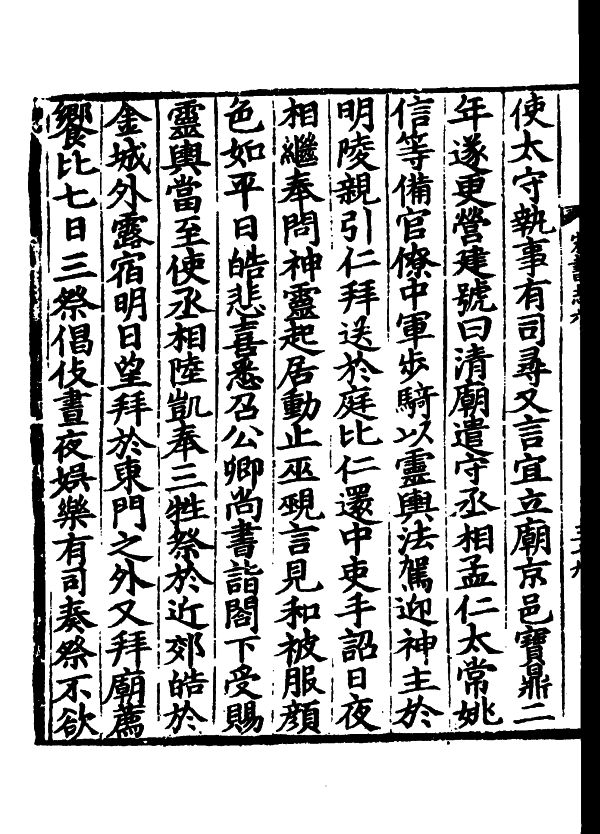 使太守執事有司尋又言宜立廟京邑寶鼎二
年遂更營建號曰清廟遣守丞相孟仁太常姚
信等備官僚中軍步騎以靈輿法駕迎神主於
明陵親引仁拜送於庭比仁還中吏手詔日夜
相繼奉問神靈起居動止巫覡言見和被服顔
色如平日皓悲喜悉召公卿尚書詣閤下受賜
靈輿當至使丞相陸凱奉三牲祭於近郊皓於
金城外露宿明日望拜於東門之外又拜廟薦
饗比七日三祭倡伎晝夜娛樂有司奏祭不欲